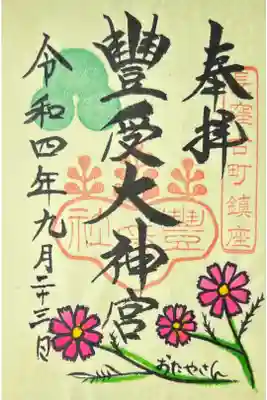 奉拝
窪台町鎮座
豊受大神宮
豊受社
令和四年九月二十三日
おたやさん